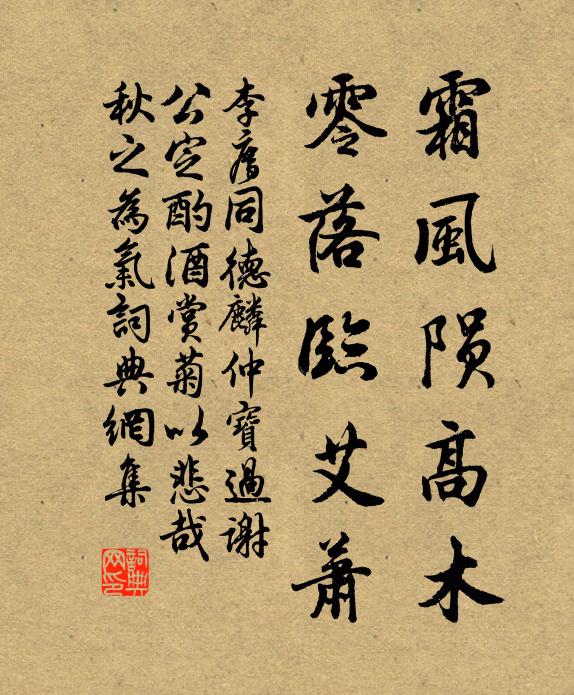 霜風陨高木
零落臨艾蕭
李廌同德麟仲寶過謝
公定酌酒賞菊以悲哉
秋之為氣詞典網集
詞典网印